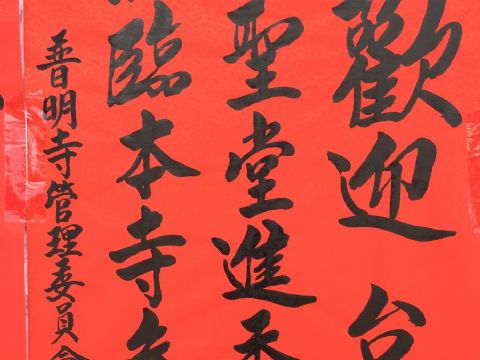 歡迎台
聖堂進香
臨本寺參
普明寺管理委員會